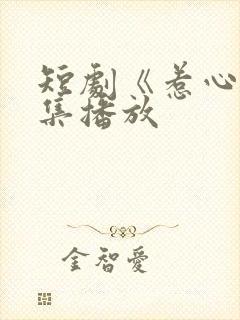 短劇《惹心
集播放
金智愛